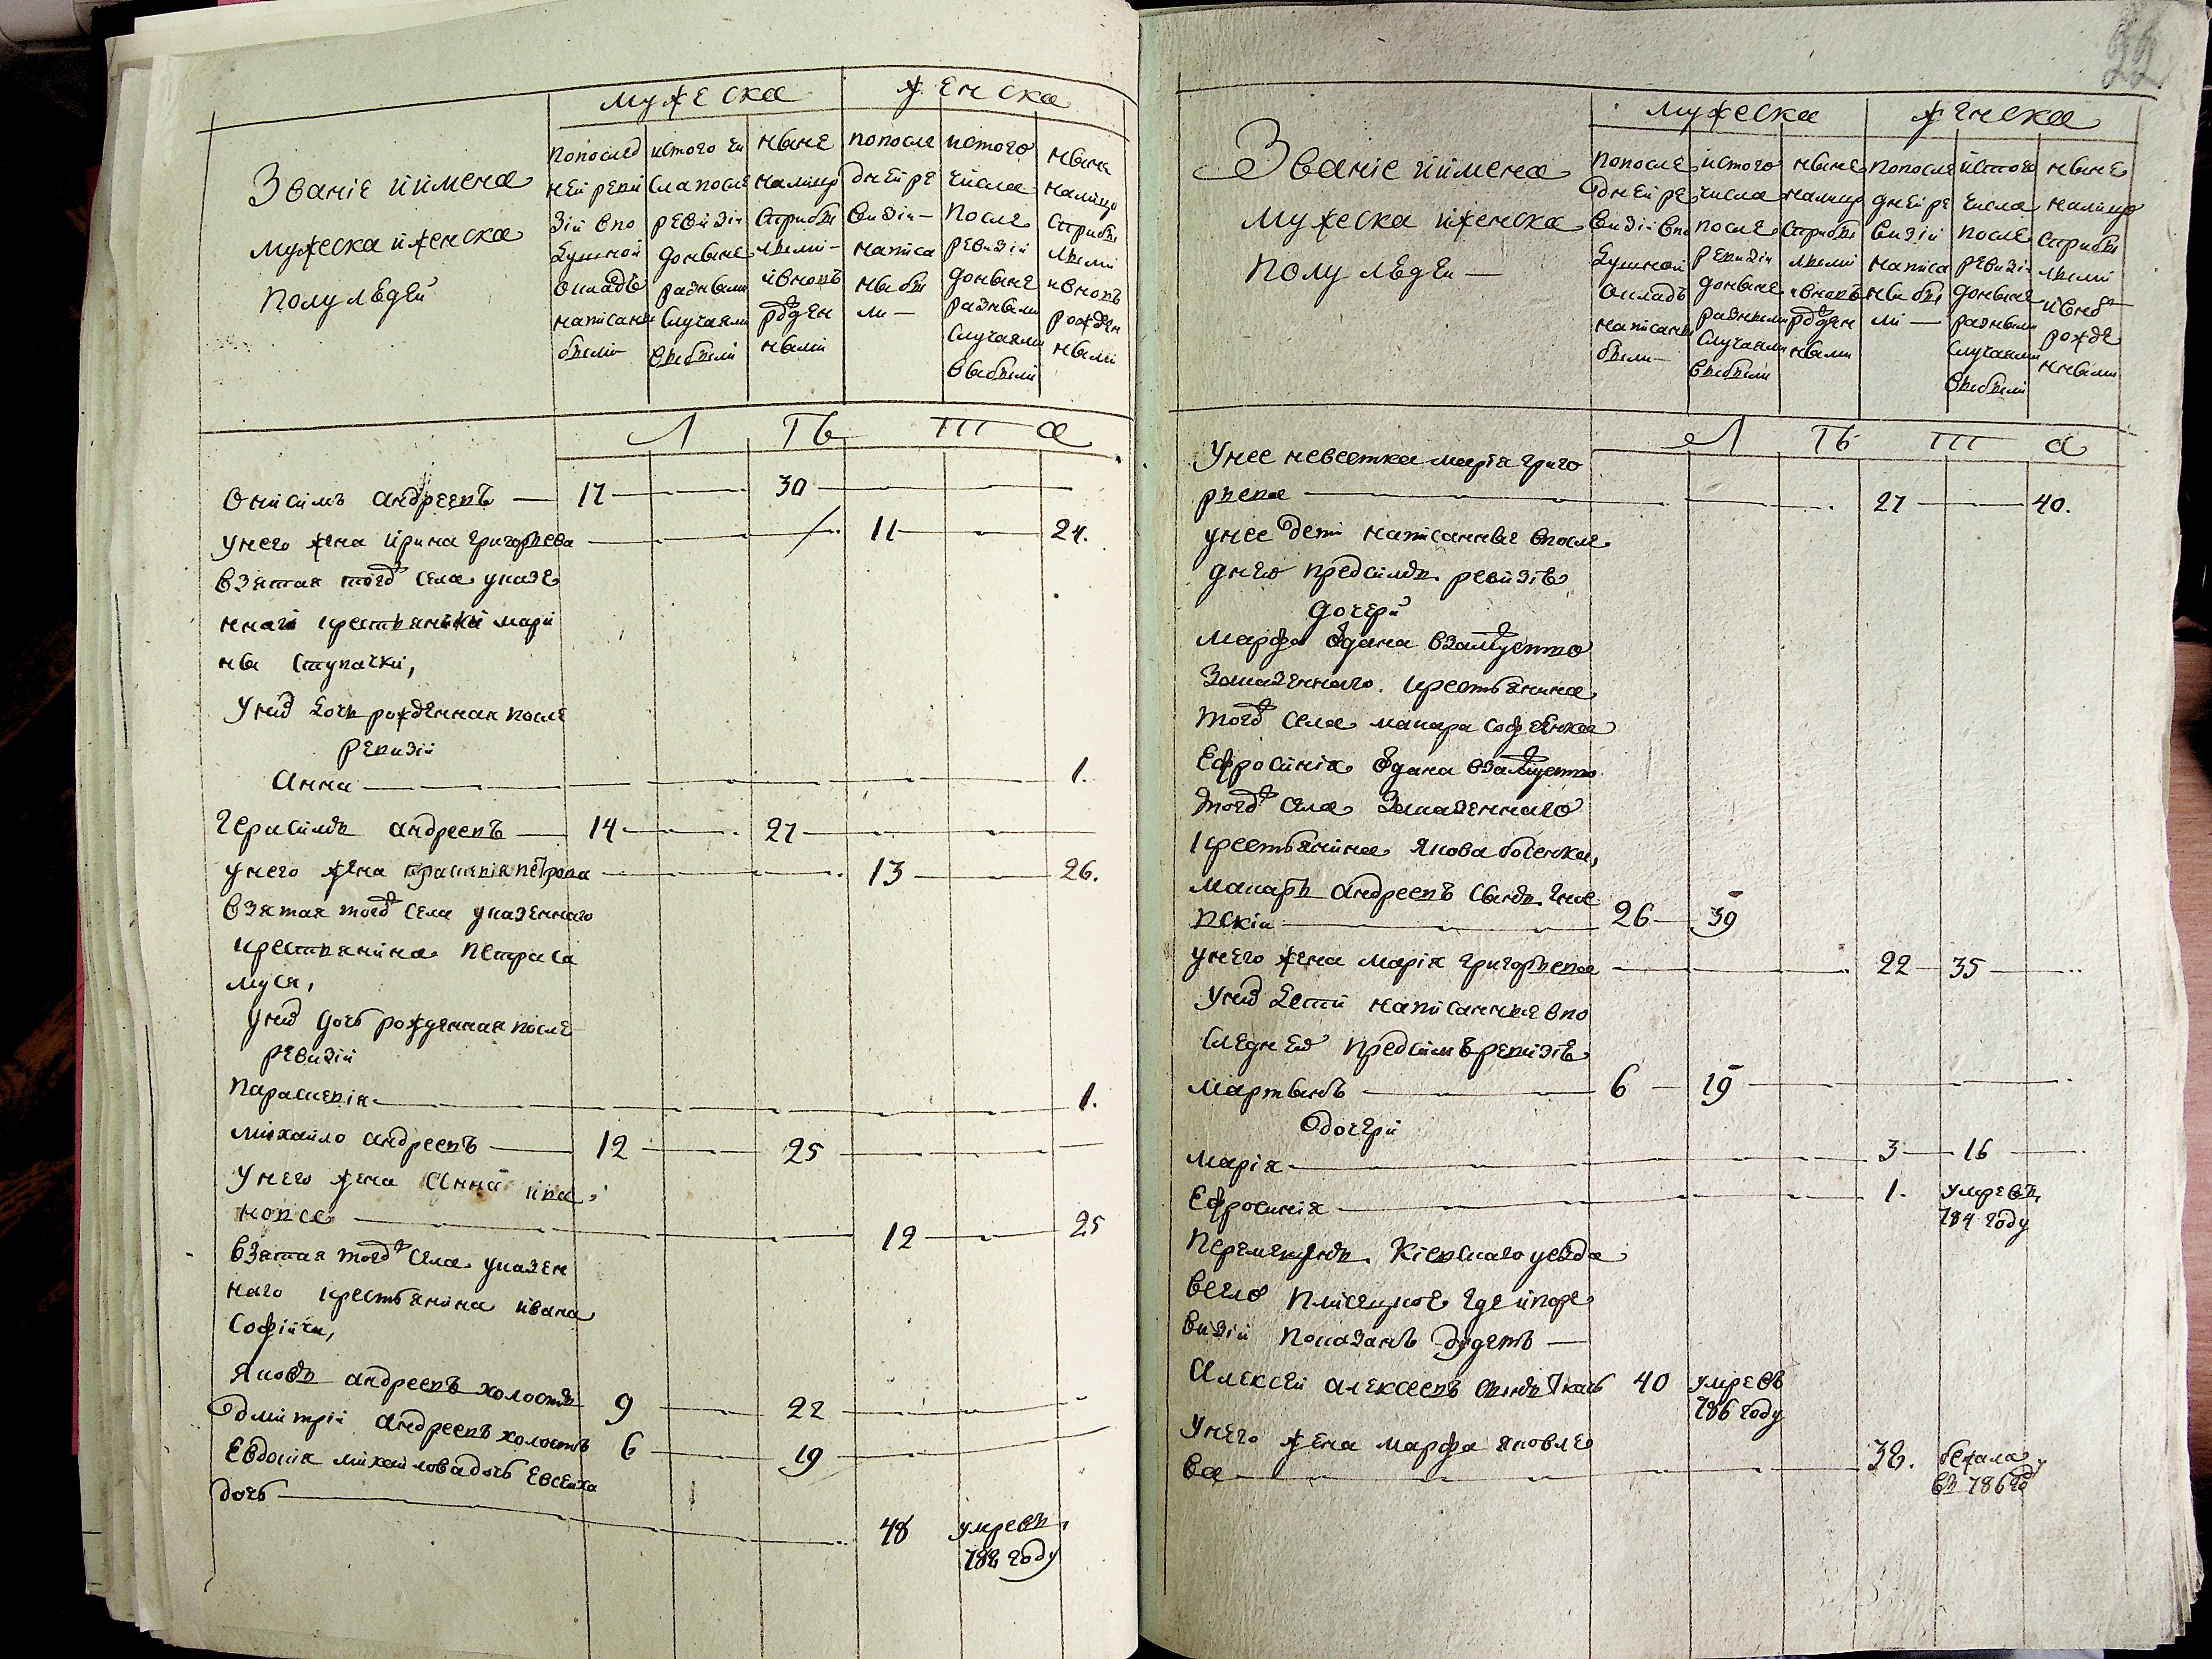 мужеска женска
Званіе иимена
мужеска иженска
полу людей
попослед
ней реви
зіи впо
душной
окладъ
написаны
были
истого чи
сла после
ревизіи
доныне
разными
случаями
выбыли
ныне
налицо
сприбы
лыми
ивновь
рожден
ными
попосле
дней ре
визіи
написа
ны бы
ли
истого
числа
после
ревизіи
доныне
разными
случаями
выбыли
ныне
налицо
сприбы
лыми
ивновь
рожден
ными
Л ТЬ Ш а
Онисимъ андреевъ 17 30
унего жена ирина григорьева 11 24.
взятая тогож села указе
нного крестьянина мари
ны ступачки,
уних дочь рожденная после
ревизіи
Анна 1.
Герасимъ андреевъ 14 27
унего жена праскевія петрова 13 26.
взятая тогож села указенного
крестьянина петра са
муся,
уних дочь рожденная после
ревизіи
Параскевія 1.
михайло андреевъ 12 25
Унего жена Анна ива
новсе 12 25
взятая тогож села указен
ного крестьянина ивана
софійчи,
Яковъ андреевъ холостъ 9 22
дмитрій андреевъ холостъ 6 19
Евдокія михайлова дочь Евсеиха
дочь 48 умре въ
782 году
22
мужеска женска
Званіе иимена
мужеска иженска
полу людей
попосле
дней ре
визіи впо
душной
окладъ
написаны
были
истого
числа
после
ревизіи
доныне
разными
случаями
выбыли
ныне
налицо
сприбы
лыми
ивновь
рожден
ными
попосле
дней ре
визіи
написа
ны бы
ли
истого
числа
после
ревизіи
доныне
разными
случаями
выбыли
ныне
налицо
сприбы
лыми
ивнов
рожде
нными
Л ТЬ Ш а
Унее невестка марія григо
рьева 27 40.
унее дети написанные впосле
днею предсимъ ревизіе
дочери
Марфа одана взамужство
Заказенного крестьянина
тогож села макара софіенка
Ефросинія одана взамужство
тогож села Заказенного
крестьянина якова босенка,
макаръ андреевъ сынъ Гнае
вскій 26 39
унего жена марія григорьева 22 35
уних дети написанныя впо
следнею предсимъ ревизіе
мартынъ 6 19
дочери
марія 3 16
Ефросинія 1. умре въ
784 году
Перемещенъ Кіевского уезда
всело плисецкое где ипоре
визіи показанъ будетъ
Алексей алексеевъ сынъ Ткачъ 40 умре въ
786 году
Унего жена марфа яковле
ва 38. бежала
въ 786 год